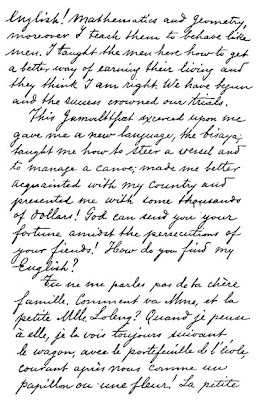 English! Mathematics and Geometry,
moreover I teach them to behave like
men. I taught the men here how to get
a better way of earning their living and
they think I am right. We have begun
and the success crowned our trials.
This Gumoltifict exerced upon me
gave me a new language, the bisaya;
taught me how to steer a vessel and
to manage a canoe; made me better
acquainted with my country and
presented me with some thousands
of dollars! God can send you your
fortune amidst the persecutions of
your fiends! How do you find my
English?
Tu ne me parles pas de ta chère
famille. Comment va Mme, et la
petite Mlle Loleng? Quand je pense
à elle, je la vois toujours suivant
le wagon, avec le portefeuille de l'école,
courant après nous comme un
papillon ou une fleur! La petite